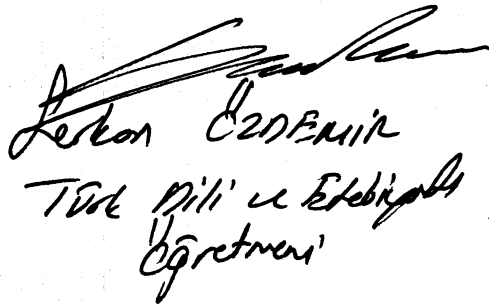 Serkan ÖZDEMİR
Türk Dili ve Edebiyatı
Öğretmeni